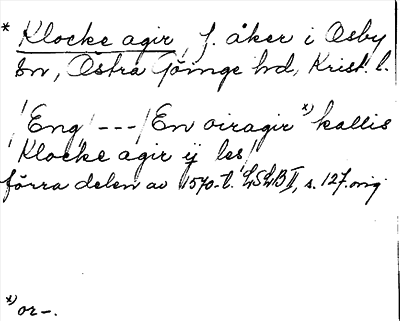 * Klocke agir, f. åker i Osby
sn, Östra Göinge hd, Krist. l.
/Eng/ --- /En oiragir x) kallis
Klocke agir ij les/
förra delen av 1570-t. LSLB II, s. 127. orig
x) or-.